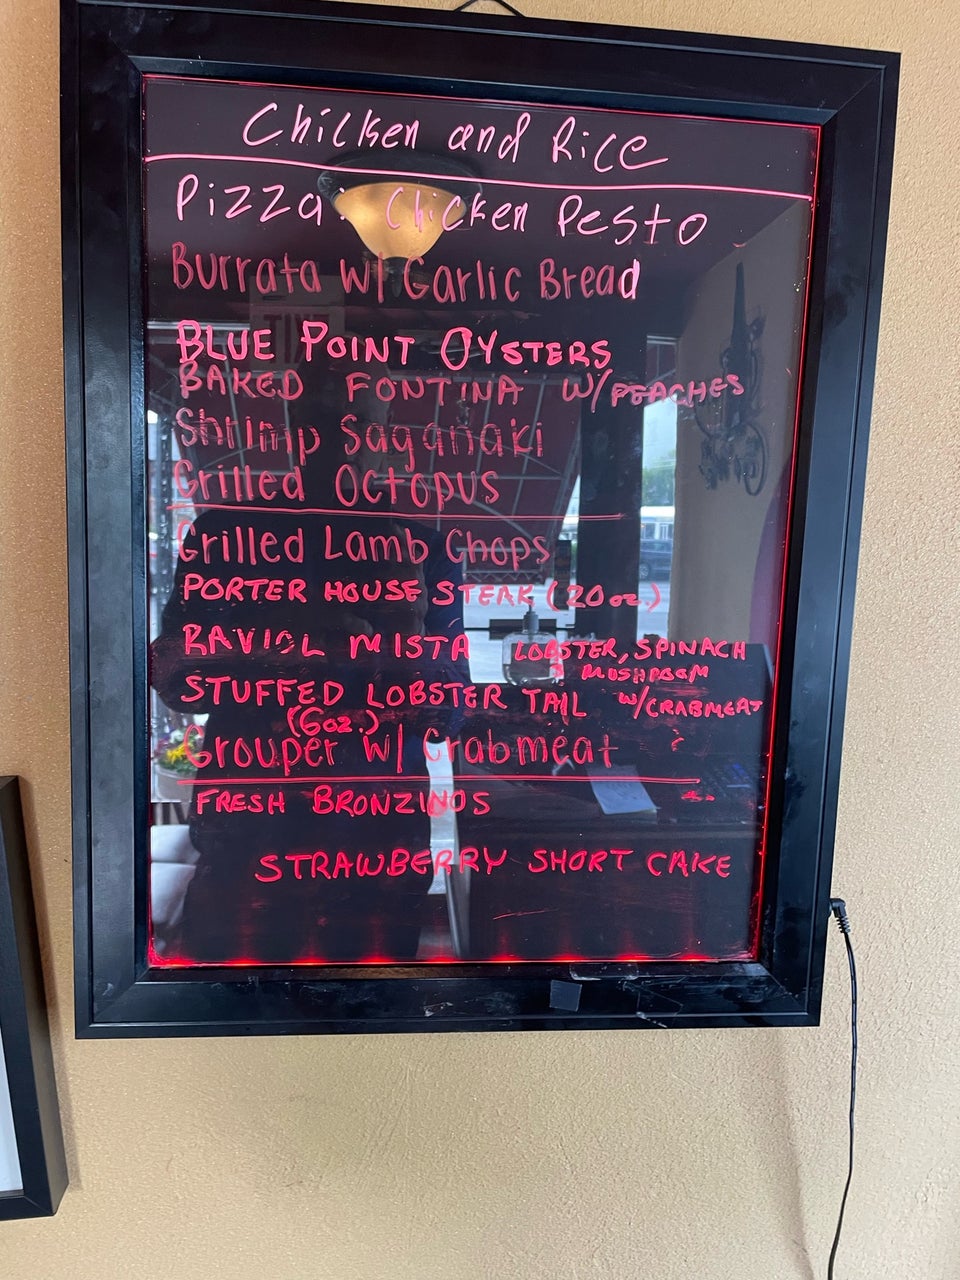 Chicken and Rice
Pizza: Chicken Pesto
Burrata w/ Garlic Bread
BLUE POINT OYSTERS
BAKED FONTINA W/PEACHES
Shrimp Saganaki
Grilled Octopus
Grilled Lamb Chops
PORTER HOUSE STEAK (20 oz.)
RAVIOL MISTA LOBSTER, SPINACH
MUSHROOM
STUFFED LOBSTER TAIL W/CRABMEAT
(6oz.)
Grouper w/ Crabmeat
FRESH BRONZINOS
STRAWBERRY SHORT CAKE